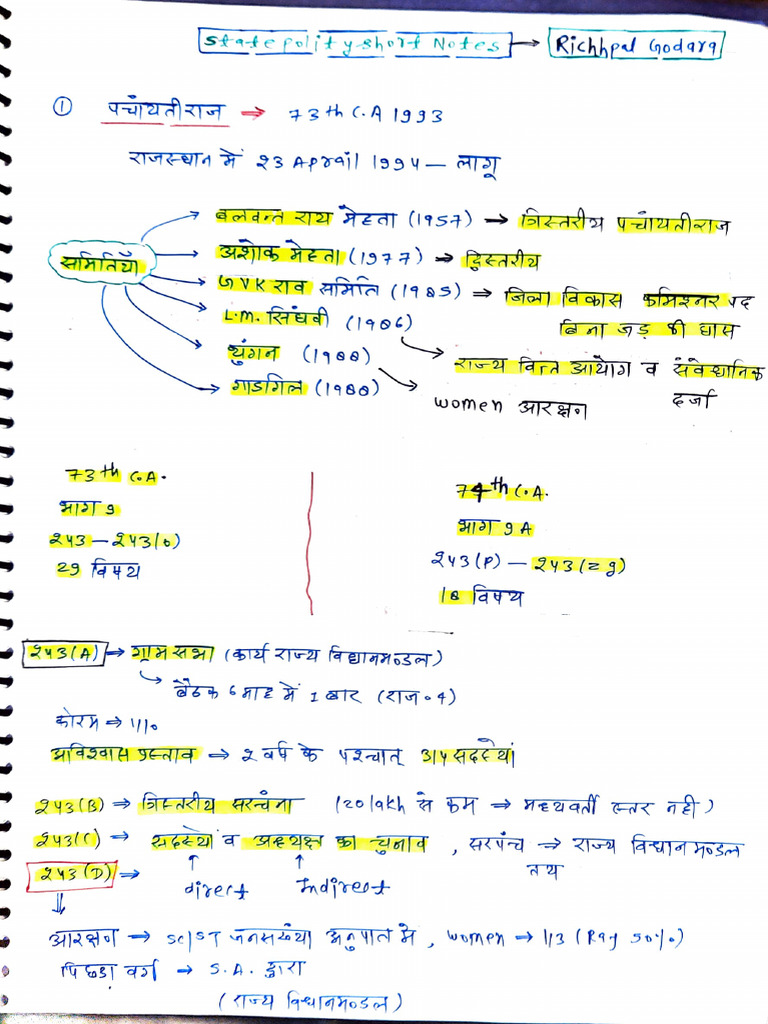 State polity short Notes → Richhpal Godara
① पचांयतीराज ⇒ 73th C.A 1993
राजस्थान में 23 Aprail 1994 – लागू
समितियाँ
बलवन्त राय मेहता (1957) → त्रिस्तरीय पचांयतीराज
अशोक मेहता (1977) → द्विस्तरीय
GVK राव समिति (1985) → जिला विकास कमिश्नर पद
बिना जड़ की घास
L.M. सिंघवी (1986)
राज्य वित्त आयोग व संवैधानिक
दर्जा
थुंगन (1988)
women आरक्षण
गाडगिल (1988)
73th C.A.
भाग 9
243 – 243(o)
29 विषय
74th C.A.
भाग 9 A
243(P) – 243(zg)
18 विषय
243(A) → ग्राम सभा (कार्य राज्य विधानमण्डल)
बैठक 6 माह में 1 बार (राज. 4)
कोरम → 1/10
अविश्वास प्रस्ताव → 2 वर्ष के पश्चात् 3/4 सदस्यों
243(B) → त्रिस्तरीय सरंचना (20 lakh से कम → मध्यवर्ती स्तर नही)
243(C) → सदस्यो व अध्यक्ष का चुनाव , सरपंच → राज्य विधानमण्डल
तय
direct Indirect
243(D) →
आरक्षण → SC/ST जनसख्या अनुपात मे, women → 1/3 (Raj 50%)
पिछडा वर्ग → S.A. द्वारा
(राज्य विधानमण्डल)